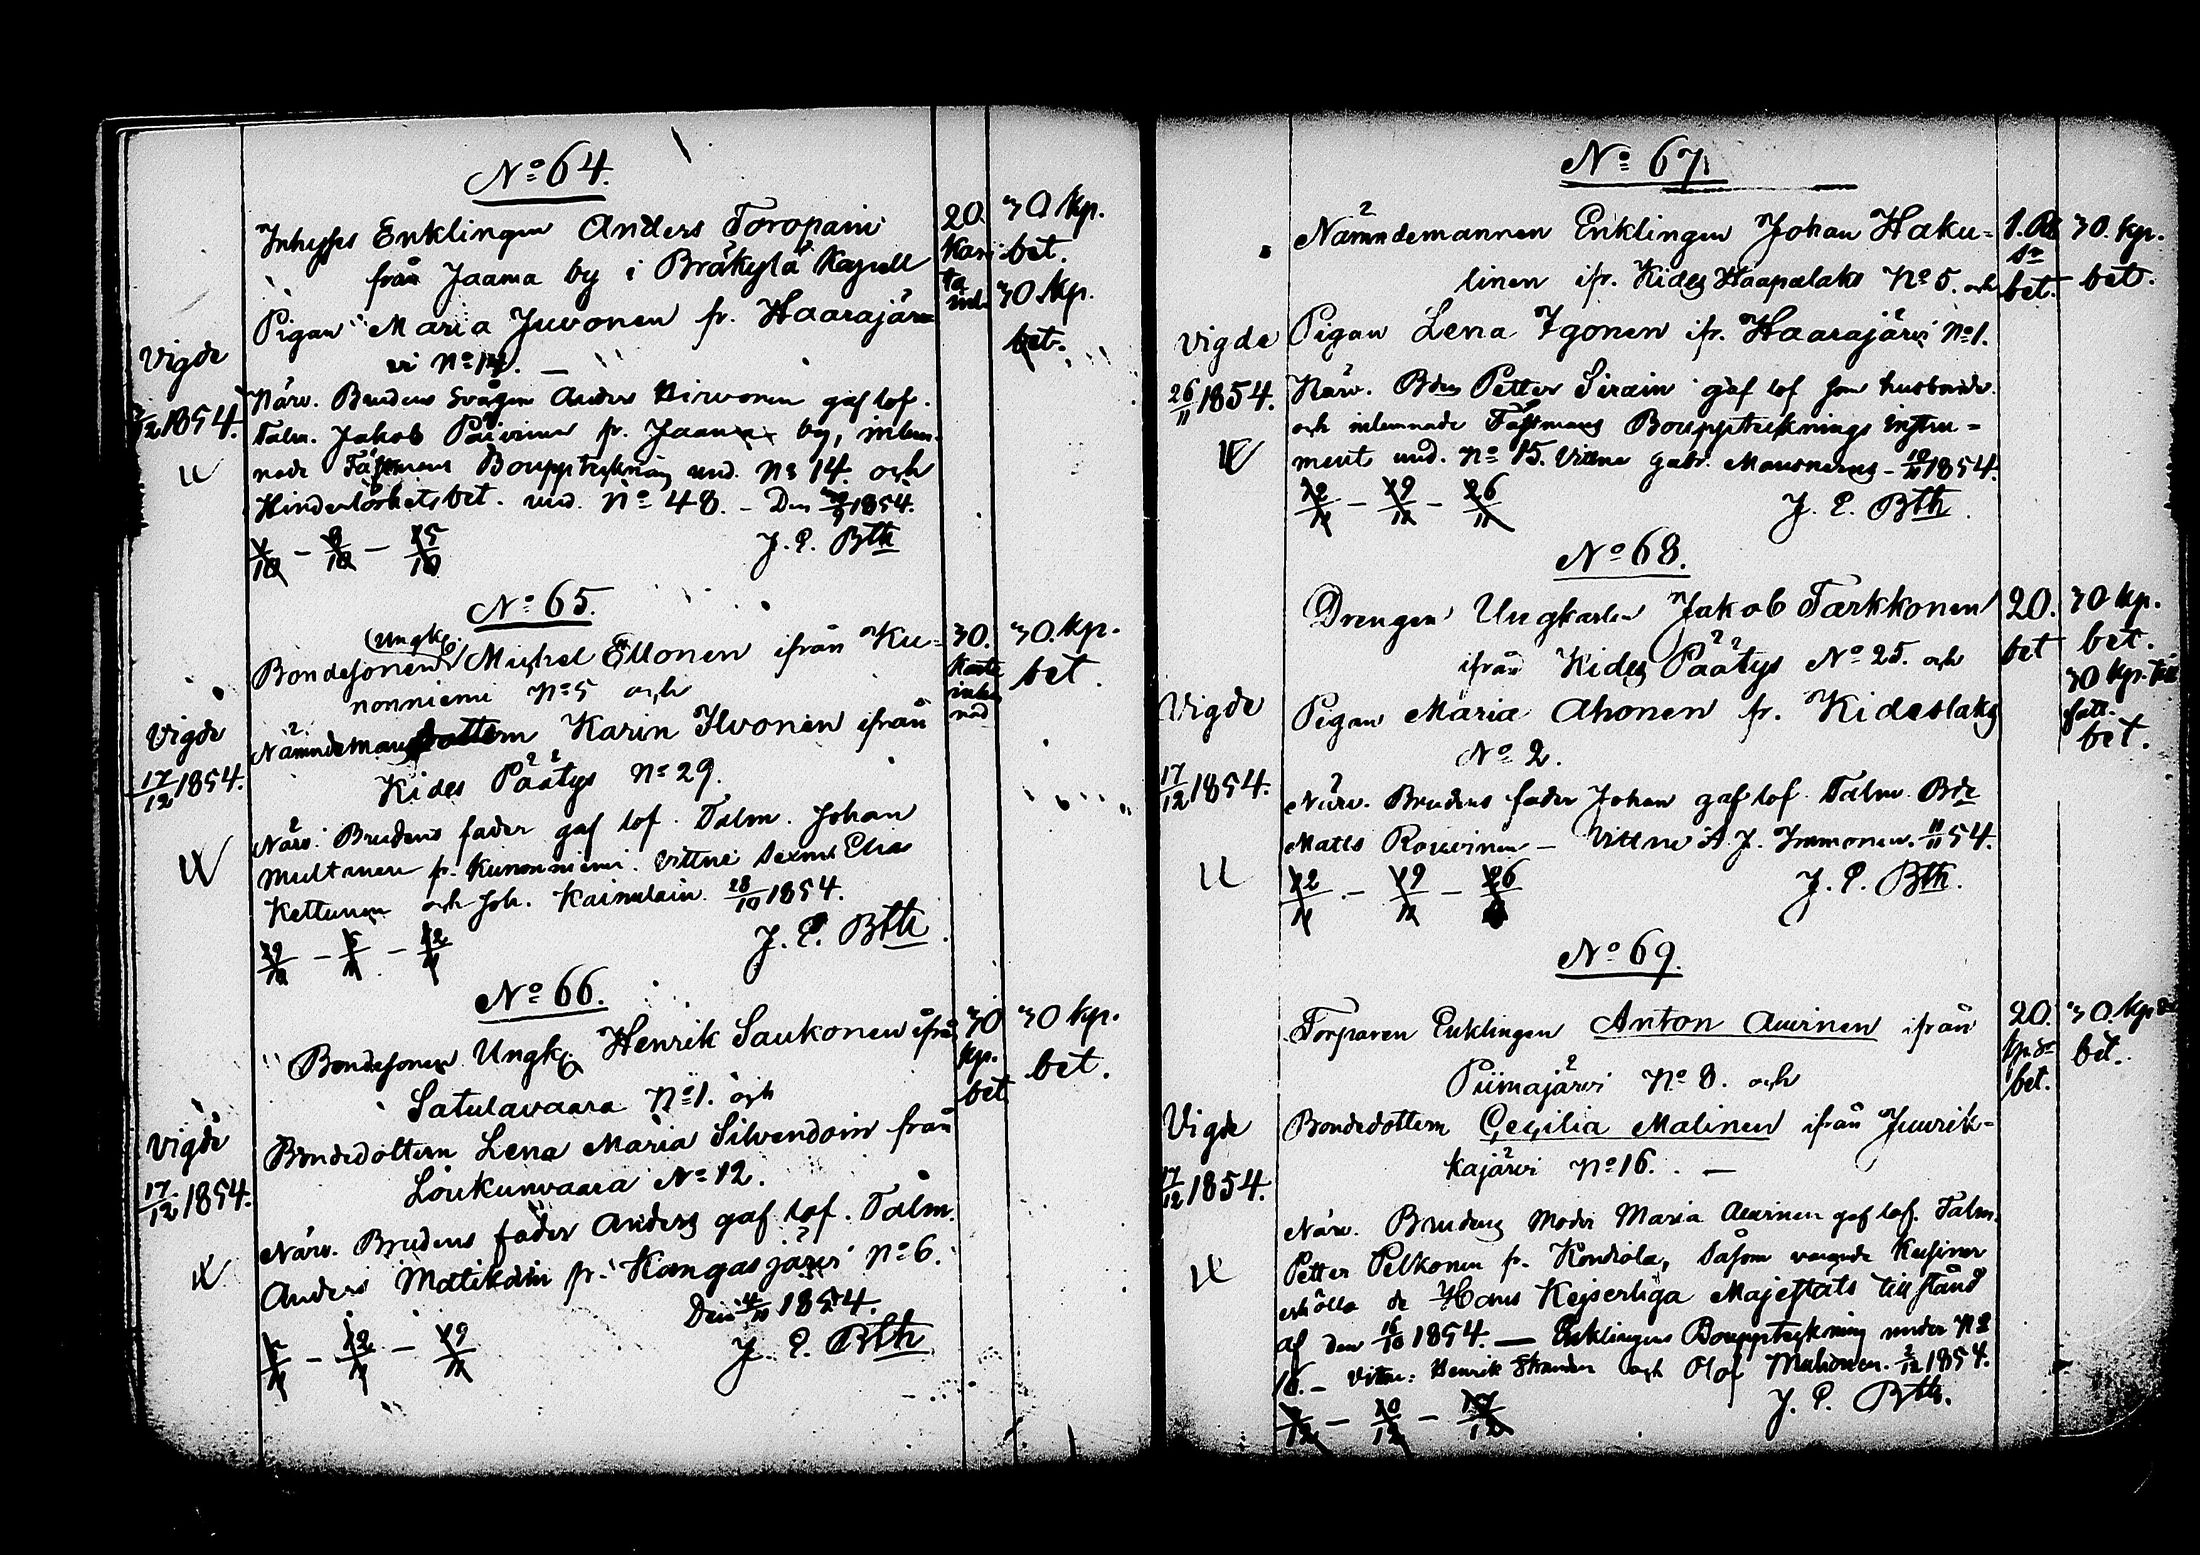 No 64.
Inhyses Enklingen Anders Toropain
från Jaama by i Bräkylä Kapell
Pigan Maria Juvonen fr. Haarajär=
vi No 14. —
Närv. Brudens Svåger Anders Hirvonen gaf lof.
Talm. Jakob Päivinen fr. Jaama by, inlem-
nade Fästmans Bouppteckning und. No 14. och
Hinderlöshetsbet. und. No 48. – Den 1854.
1/10 – 8/10 – 15/10
J. E. Bth
20.
Kari
ta
inl.
30 kp.
bet.
30 kp.
bet.
Vigde
1854.
No 65.
(Ungk.
Bondesonen Michel Ellonen ifrån Ku-
nonniemi No 5 och
Nämndemansdottern Karin Ilvonen ifrån
Kides Päätys No 29.
Närv. Brudens fader gaf lof. Talm. Johan
Multanen fr. Kunonniemi. Vittne Sexm. Elias
Kettunen och Joh. Kainulain. 28/10 1854.
29/10 – 5/11 – 12/11
J. E. Bth.
30.
30. kp.
bet.
Vigde
17/12 1854.
No 66.
Bondesonen Ungk. Henrik Saukonen ifrån
Satulavaara No 1. och
Bondedottern Lena Maria Silvendoin från
Loukunvaara No 12.
Närv. Brudens fader Anders gaf lof. Talm.
Anders Matikain fr. Kangasjärvi No 6.
Den 1854.
5/11 – 12/11 – 19/11
J. E. Bth
30
kp.
bet
30 kp.
bet.
Vigde
17/12 1854.
No 67.
Nämndemannen Enklingen Johan Haku=
linen ifr. Kides Haapalaks No 5. och
Pigan Lena Igonen ifr. Haarajärvi No 1.
Närv. Bdn Petter Sirain gaf lof som husbonde.
och inlemnade Fästmans Bouppteknings Instru=
ment und. No 15. Vittne Gabr. – 1854.
12/11 – 19/11 – 26/11
J. E. Bth.
1. Rb
Sr
bet.
30. kp.
bet.
Vigde
26/11 1854.
No 68.
Drengen Ungkarlen Jakob Tarkkonen
ifrån Kides Päätys No 25. och
Pigan Maria Ahonen fr. Kideslaks
No 2.
Närv. Brudens fader Johan gaf lof. Talm. Bde
Matts Rouvinen – Vittne A. J. Immonen. 11/11 54.
12/11 – 19/11 – 26
J. E. Bth.
20.
bet
30 kp.
bet.
30 kp. till
fatt.
bet.
Vigde
17/12 1854.
No 69.
Torparen Enklingen Anton Auvinen ifrån
Piimajärvi No 8. och
Bondedottern Cecilia Malinen ifrån Juurik-
kajärvi No 16. . —
Närv. Brudens Moder Maria Auvinen gaf lof. Talm.
Petter Pelkonen fr. Kontiola, Såsom varande Kusiner
erhöllo de Hans Kejserliga Majestäts tillstånd
af den 16/10 1854. — Enklingens Bouppteckning under No
16. – Vittne: Henrik och Olof 2/12 1854.
3/12 – 10/12 – 17/12
J. E. Bth.
20.
kp. Sr
bet.
30. kp Sr
bet.
Vigde
17/12 1854.